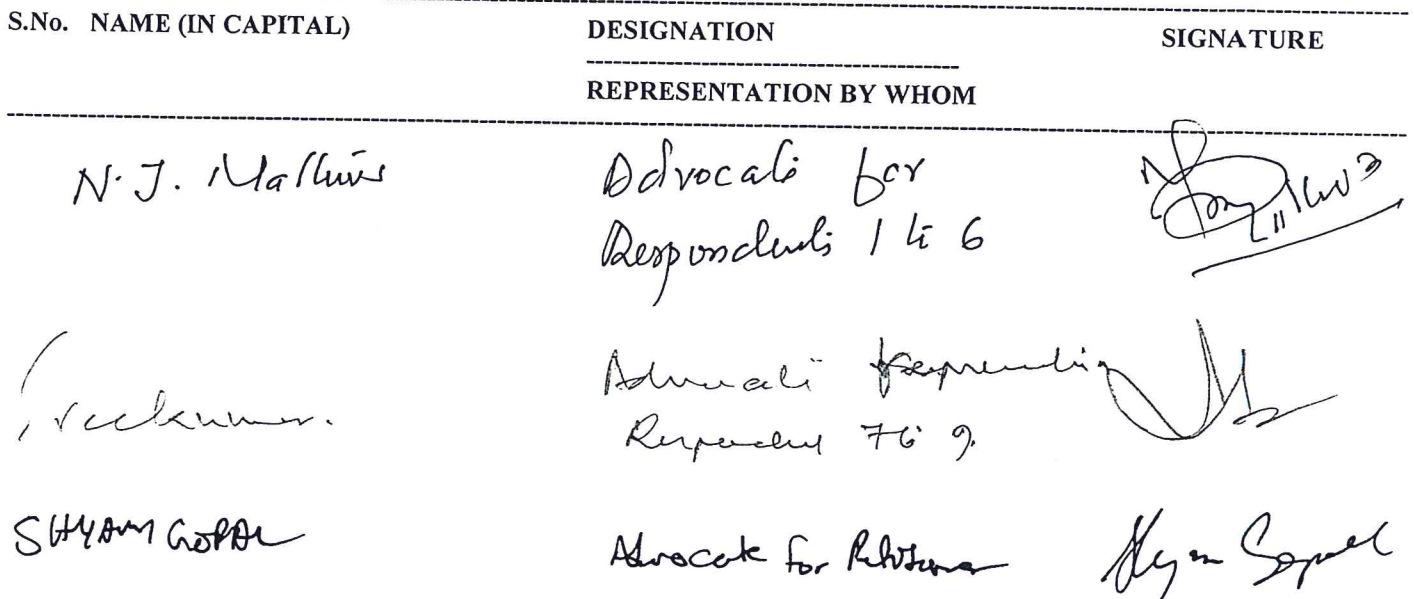 S.No. NAME (IN CAPITAL) DESIGNATION SIGNATURE
REPRESENTATION BY WHOM
N. J. Advocate for
Respondents 1 to 6
Sreekumar. Advocate Representing
Respondent 7 to 9.
SHYAM GOPAL Advocate for Petitioner Shyam Gopal